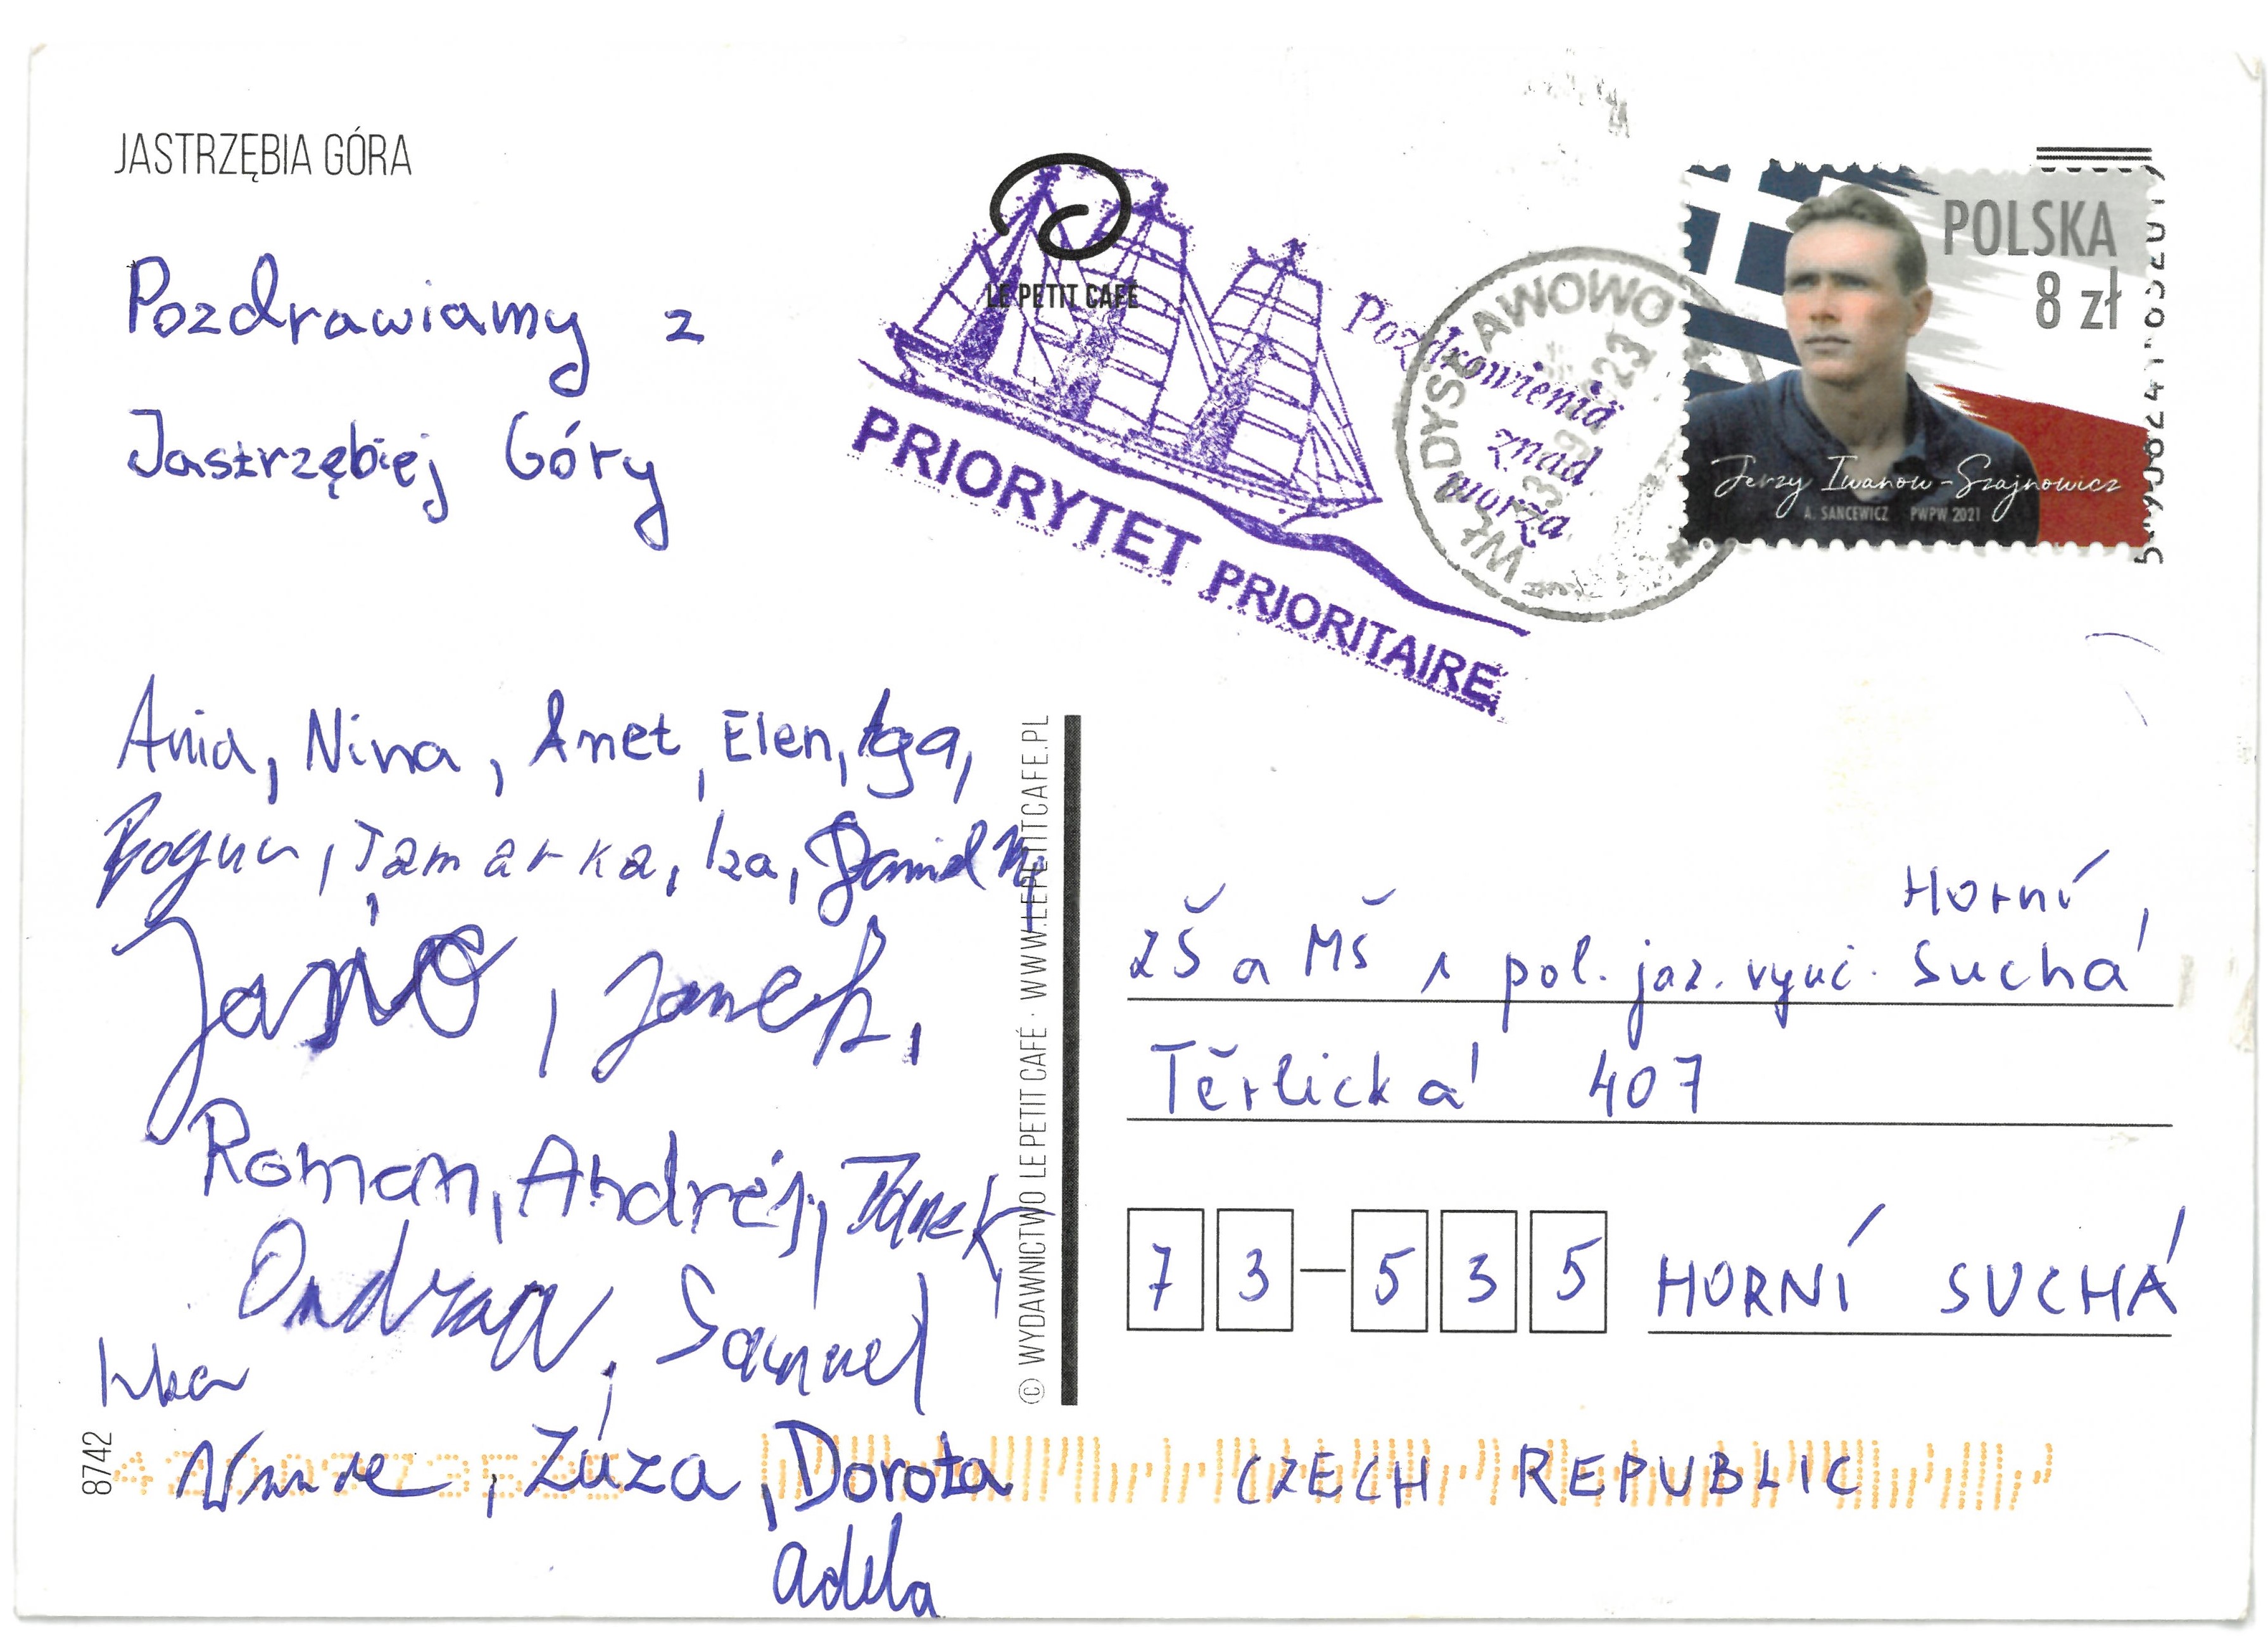 JASTRZĘBIA GÓRA
Pozdrawiamy z
Jastrzębiej Góry
LE PETIT CAFÉ
PRIORYTET PRIORITAIRE
Pozdrowienia
znad
morza
WŁADYSŁAWOWO
POLSKA
8 zł
Jerzy Iwanow-Szajnowicz
A. SANCEWICZ PWPW 2021
Ania, Nina, Anet, Elen, Aga,
Tamarka, Iza, Daniel M,
Jasio, Janek,
Roman, Andrzej, Danek
Ondraa, Samuel
Zuza, Dorota
adela
8742
© WYDAWNICTWO LE PETIT CAFÉ · WWW.LEPETITCAFE.PL
Horní
ZŠ a MŠ s pol. jaz. vyuč. Suchá,
Těrlická 407
73-535 HORNÍ SUCHÁ
CZECH REPUBLIC